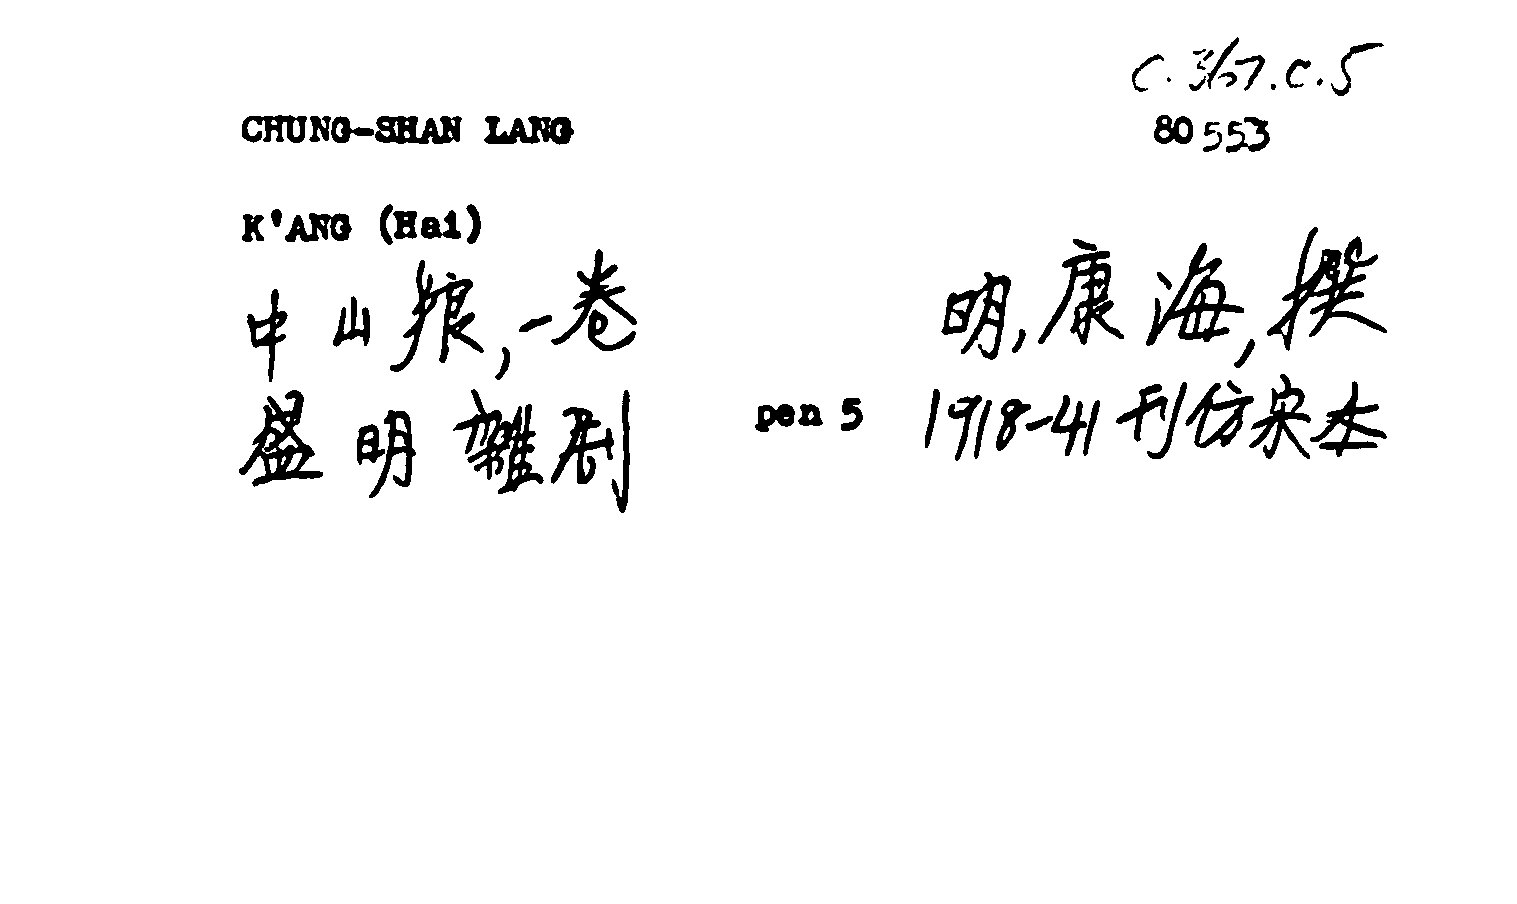 C.367.C.5
CHUNG-SHAN LANG 80553
K'ANG (Hai)
中山狼,一卷 明,康海,撰
盛明雜劇 pen 5 1918-41刊仿宋本